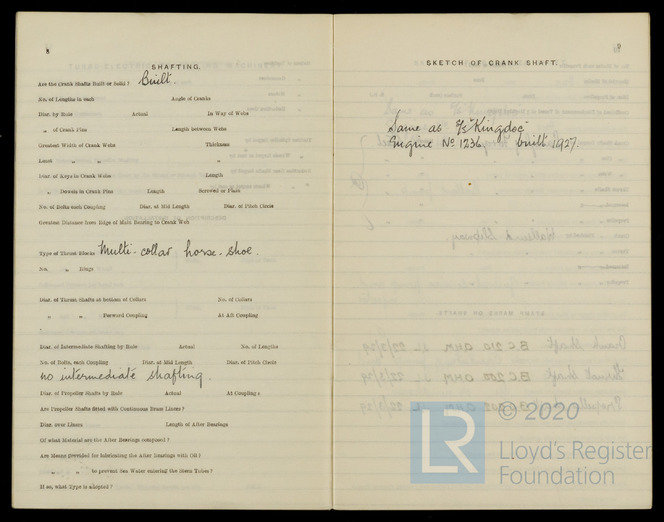 8
SHAFTING.
Are the Crank Shafts Built or Solid? Built.
No. of Lengths in each Angle of Cranks
Diar. by Rule Actual In Way of Webs
„ of Crank Pins Length between Webs
Greatest Width of Crank Webs Thickness
Least „ „ „
Diar. of Keys in Crank Webs Length
„ Dowels in Crank Pins Length Screwed or Plain
No. of Bolts each Coupling Diar. at Mid Length Diar. of Pitch Circle
Greatest Distance from Edge of Main Bearing to Crank Web
Type of Thrust Blocks Multi-collar horse-shoe.
No. „ Rings
Diar. of Thrust Shafts at bottom of Collars No. of Collars
„ „ Forward Coupling At Aft Coupling
Diar. of Intermediate Shafting by Rule Actual No. of Lengths
No. of Bolts, each Coupling Diar. at Mid Length Diar. of Pitch Circle
no intermediate shafting.
Diar. of Propeller Shafts by Rule Actual At Couplings
Are Propeller Shafts fitted with Continuous Brass Liners?
Diar. over Liners Length of After Bearings
Of what Material are the After Bearings composed?
Are Means provided for lubricating the After Bearings with Oil?
„ „ to prevent Sea Water entering the Stern Tubes?
If so, what Type is adopted?
9
SKETCH OF CRANK SHAFT.
Same as S/S "Kingdoc"
Engine No 1236. built 1927.
© 2020
LR
Lloyd's Register
Foundation